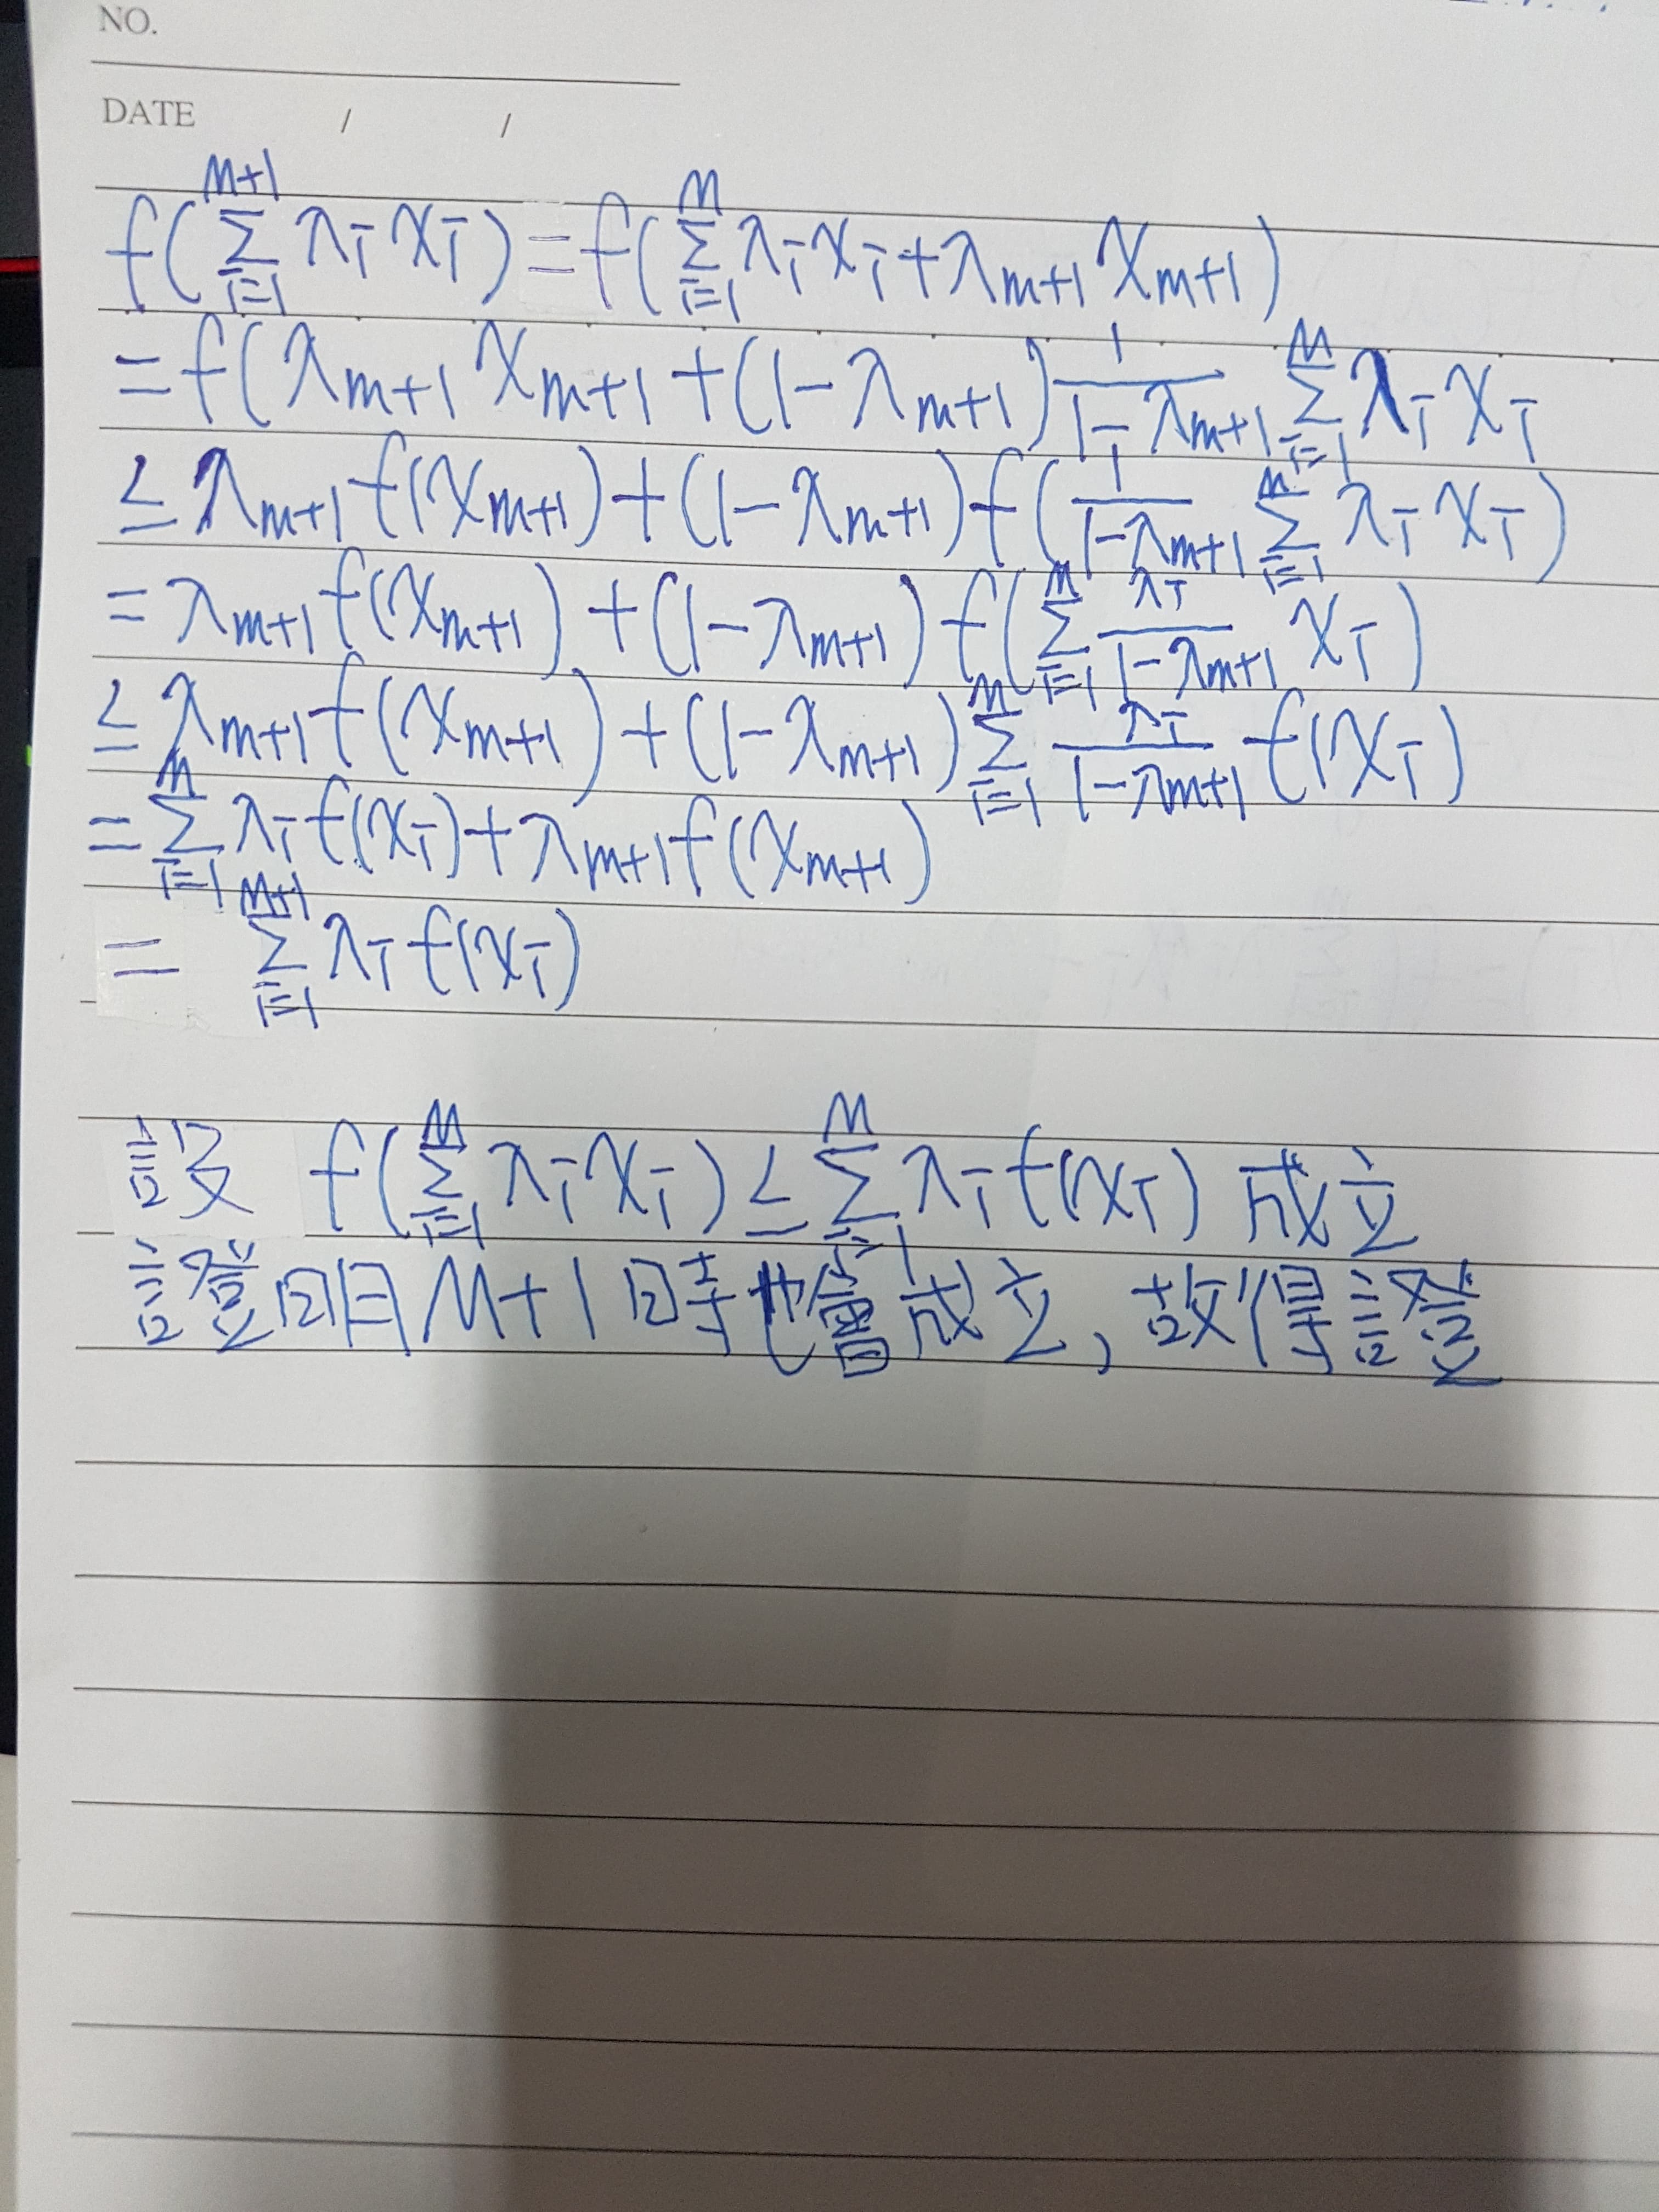 NO.
DATE / /
f(∑_{i=1}^{M+1} λi xi) = f(∑_{i=1}^{M} λi xi + λm+1 xm+1)
= f(λm+1 xm+1 + (1-λm+1) 1/(1-λm+1) ∑_{i=1}^{M} λi xi
≤ λm+1 f(xm+1) + (1-λm+1) f(1/(1-λm+1) ∑_{i=1}^{M} λi xi)
= λm+1 f(xm+1) + (1-λm+1) f(∑_{i=1}^{M} λi/(1-λm+1) xi)
≤ λm+1 f(xm+1) + (1-λm+1) ∑_{i=1}^{M} λi/(1-λm+1) f(xi)
= ∑_{i=1}^{M} λi f(xi) + λm+1 f(xm+1)
= ∑_{i=1}^{M+1} λi f(xi)
設 f(∑_{i=1}^{M} λi xi) ≤ ∑_{i=1}^{M} λi f(xi) 成立
證明M+1時也會成立,故得證